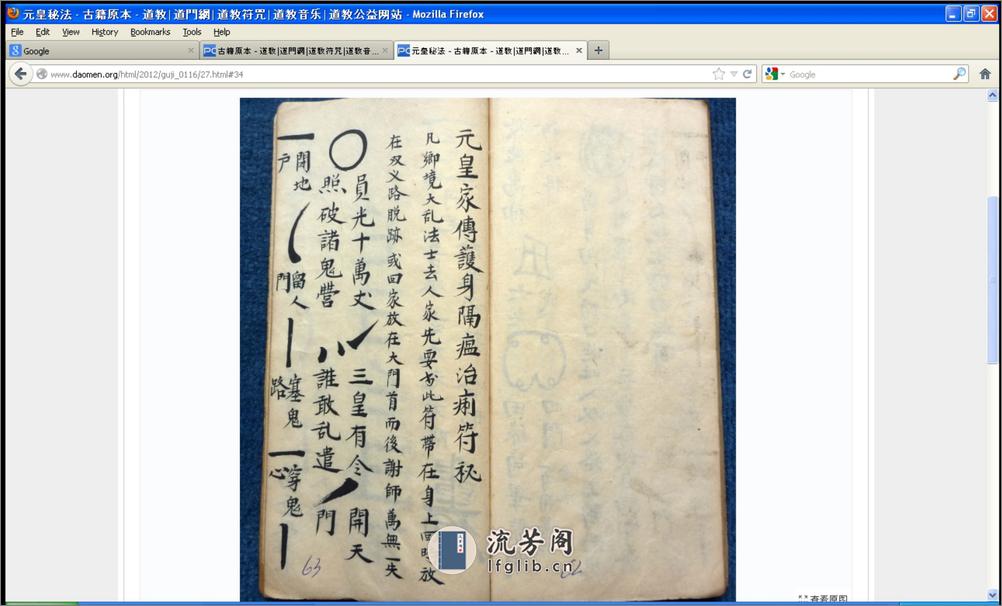 元皇秘法 - 古籍原本 - 道教|道門網|道教符咒|道教音乐|道教公益网站 - Mozilla Firefox
File Edit View History Bookmarks Tools Help
Google
古籍原本 - 道教|道門網|道教符咒|道教音...
元皇秘法 - 古籍原本 - 道教|道門網|道教...
www.daomen.org/html/2012/guji_0116/27.html#34
Google
元皇家傳護身隔瘟治痢符秘
凡鄉境大乱法士去人家先要书此符帶在身上回時放
在双义路脱跡或回家放在大門首而後謝師萬無一失
員光十萬丈
三皇有令
開天
照破諸鬼營
誰敢乱遣
門
開地
戶
留人
門
塞鬼
路
穿鬼
心
63
流芳阁
lfglib.cn
查看原图